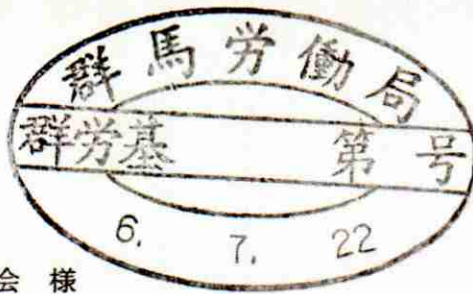 群馬労働局
群労基 第 号
6. 7. 22
会 様